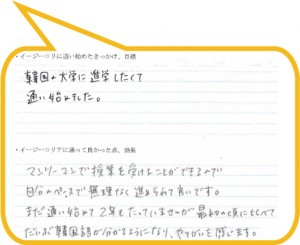 ・イージーコリアに通い始めたきっかけ、目標
韓国の大学に進学したくて
通い始めました。
・イージーコリアに通って良かった点、効果
マンツーマンで授業を受けることができるので
自分のペースで無理なく進められて良いです。
まだ通い始めて2年もたっていませんが最初の頃に比べて
だいぶ韓国語が分かるようになり、やりがいを感じます。